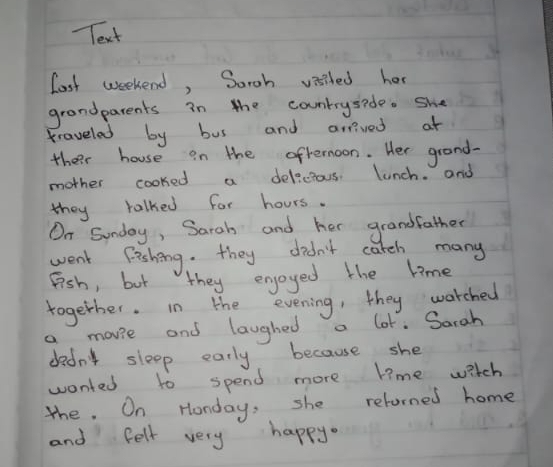 Text
Last weekend, Sarah visited her
grandparents in the countryside. She
traveled by bus and arrived at
their house in the afternoon. Her grand-
mother cooked a delicious lunch. and
they talked for hours.
On Sunday, Sarah and her grandfather
went fishing. they didn't catch many
fish, but they enjoyed the time
together. in the evening, they watched
a movie and laughed a lot. Sarah
didn't sleep early because she
wanted to spend more time witch
the. On Monday, she returned home
and felt very happy.